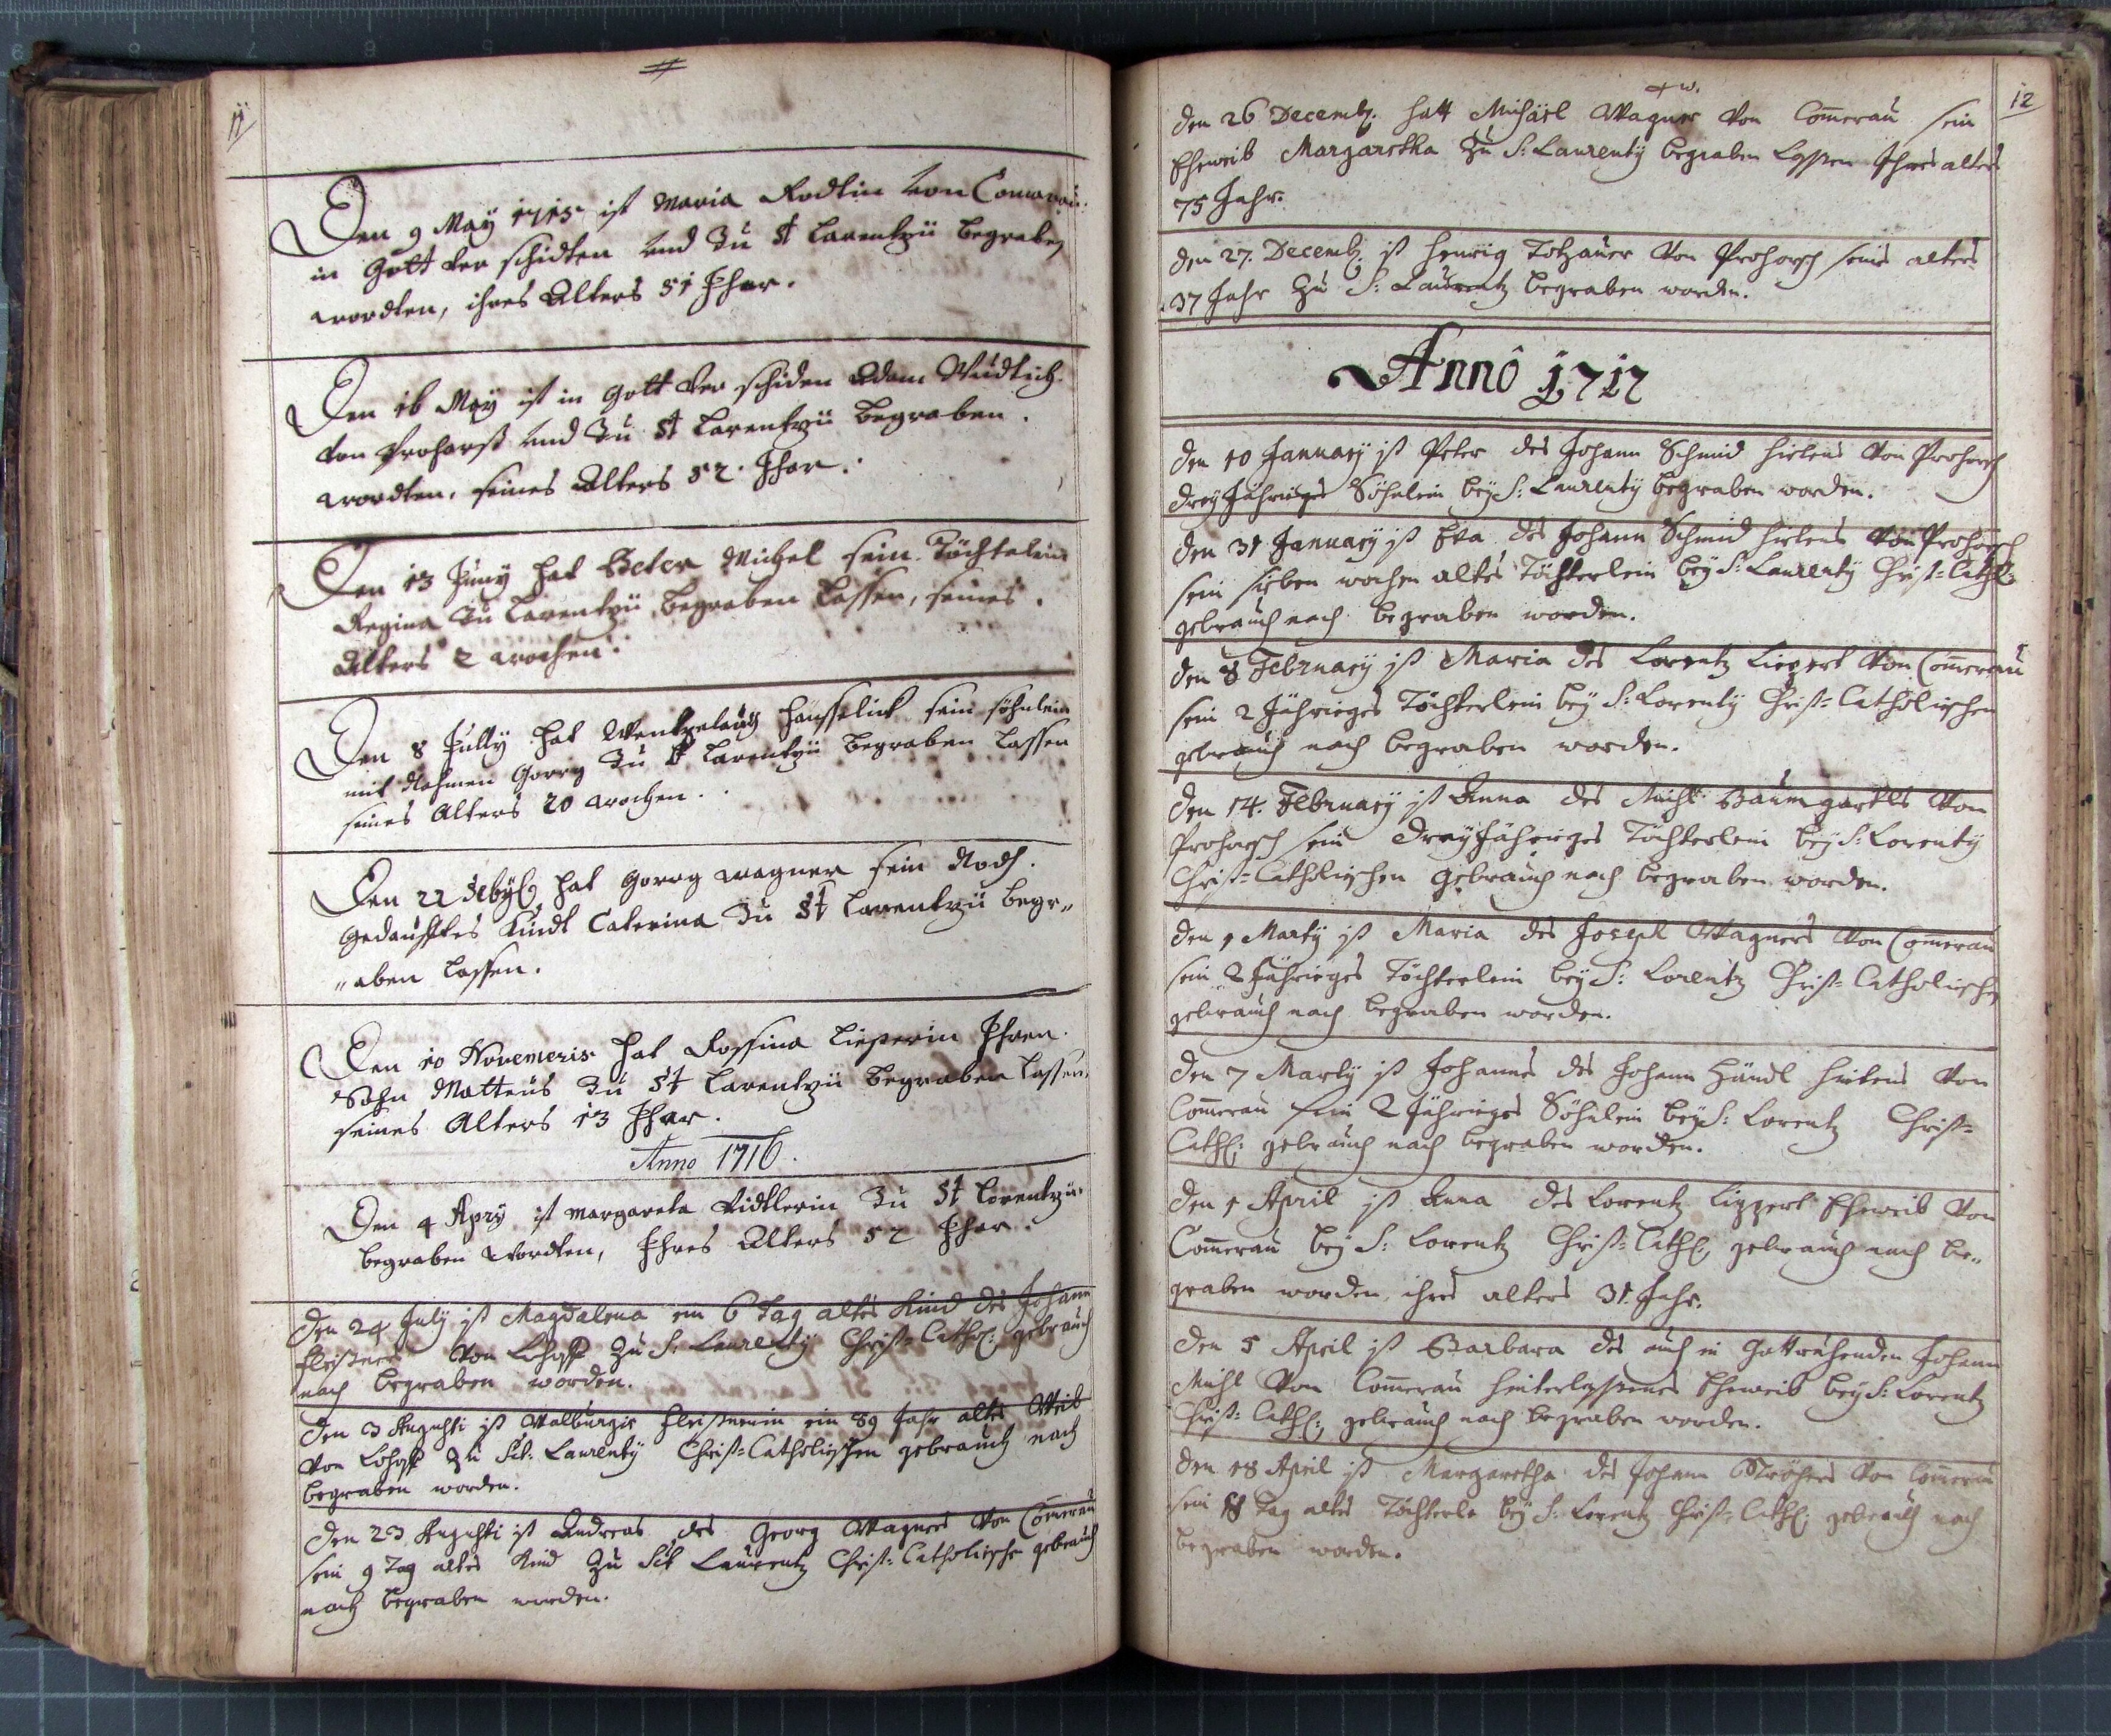 11
Den 9 Maÿ 1715 ist Maria Rodlin von Comerau
in Gott ver schidten und Zu St Larentzii begraben
wordten, ihres Alters 51 Jhar.
Den 16 Maÿ ist in Gott ver schiden Adam
von Proharß und Zu St Larentzii begraben
wordten, seines Alters 52 Jhar.
Den 13 Junÿ hat Beter Michel sein Töchtelein
Regina Zu Larentzii begraben lassen, seines
Alters 2 wochen.
Den 8 Jully hat sein söhnlein
mit Nahmen Gorrg Zu St Larentzii begraben lassen
seines Alters 20 wochen.
Den 22 hat Gorrg wagner sein Noth
Gedaufftes Kindt Caterina Zu St Larentzii begr„
„aben lassen.
Den 10 Novemeris hat Rossina Ihren
Sohn Matteus Zu St Larentzii begraben lassen,
seines Alters 13 Jhar.
Anno 1716.
Den 4 Aprÿ ist Margareta Zu St Lorentzii
begraben wordten, Ihres Alters 52 Jhar.
Den 24 Julÿ ist Magdalena ein 6 Tag altes Kind des Johann
Fleisners von Zu S: Laurentÿ Christ=Cathol: gebrauch
nach begraben worden.
Den 3 Augusti ist Walburgis Fleisnerin ein 89 Jahr altes Weib
von Zu Sct: Laurentÿ Christ=Catholischen gebrauch nach
begraben worden.
Den 23 Augusti ist Andreas des Georg Wagners von Comerau
sein 9 Tag altes Kind Zu Sct Laurentz Christ=Catholischen gebrauch
nach begraben worden.
12
Den 26 Decemb: hatt Michäel Wagner von Comerau sein
Eheweib Margaretha Zu S: Laurentÿ begraben lassen Ihres alters
75 Jahr.
Den 27. Decemb: ist Henrig Totzauer von Prohorsch seines alters
37 Jahr Zu S: Laurentz begraben worden.
Anno 1717
Den 10 Januarÿ ist Peter des Johann Schmid Hirtens von Prohorsch
dreÿ Jähriges Söhnlein beÿ S: Laurentÿ begraben worden.
Den 31 Januarÿ ist Eva des Johann Schmid Hirtens von Prohorsch
sein sieben wochen altes Töchterlein beÿ S: Laurentÿ Christ=Cathl:
gebrauch nach begraben worden.
Den 8 Februarÿ ist Maria des Lorentz Lippert von Comerau
sein 2 Jähriges Töchterlein beÿ S: Lorentÿ Christ=Catholischen
gebrauch nach begraben worden.
Den 14. Februarÿ ist Anna des Michl Baumgartls von
Prohorsch sein Dreÿ Jähriges Töchterlein beÿ S: Lorentÿ
Christ=Catholischen gebrauch nach begraben worden.
Den 1 Martÿ ist Maria des Joseph Wagners von Comerau
sein 2 Jähriges Töchterlein beÿ S: Lorentz Christ=Catholischen
gebrauch nach begraben worden.
Den 7 Martÿ ist Johannes des Johann Händl Hirtens von
Comerau sein 2 Jähriges Söhnlein beÿ S: Lorentz Christ=
Cathl: gebrauch nach begraben worden.
Den 1 April ist Anna des Lorentz Lippert Eheweib von
Comerau beÿ S: Lorentz Christ=Cathl: gebrauch nach be„
graben worden, ihres alters 31 Jahr.
Den 5 April ist Barbara des auch in Gott ruhenden Johann
Michl von Comerau hinterlassenes Eheweib beÿ S: Lorentz
Christ=Cathl: gebrauch nach begraben worden.
Den 18 April ist Margaretha des Johann von Comerau
sein 18 Tag altes Töchterle beÿ S: Lorentz Christ=Cathl: gebrauch nach
begraben worden.